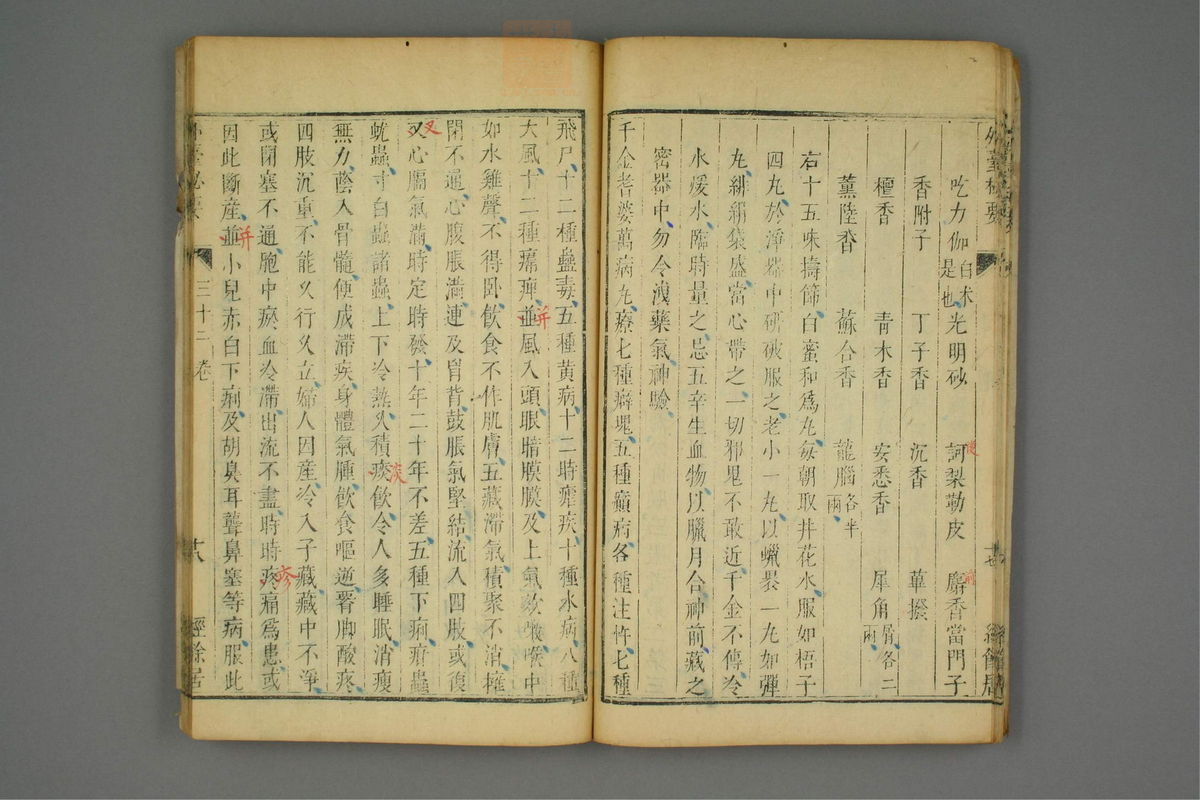 外臺秘要
吃力伽白术是也 光明砂 訶梨勒皮 麝香當門子
香附子 丁子香 沉香 蓽撥
檀香 青木香 安悉香 犀角屑各二兩
薰陸香 蘇合香 龍腦各半兩
右十五味擣篩白蜜和爲丸每朝取井花水服如梧子
四丸於淨器中研破服之老小一丸以蠟裹一丸如彈
丸緋絹袋盛當心帶之一切邪鬼不敢近千金不傳冷
水煖水臨時量之忌五辛生血物以臘月合神前藏之
密器中勿令洩藥氣神驗
千金耆婆萬病丸療七種癖塊五種癲病各種注忤七種
飛尸十二種蠱毒五種黄病十二時瘧疾十種水病八種
大風十二種㾏痺並風入頭眼暗膜膜及上氣欬嗽喉中
如水雞聲不得卧飲食不作肌膚五藏滯氣積聚不消擁
閉不通心腹脹滿連及胷背鼓脹氣堅結流入四肢或復
叉心膈氣滿時定時發十年二十年不差五種下痢疳蟲
蚘蟲寸白蟲諸蟲上下冷熱乆積痰飲令人多睡眠消瘦
無力蔭入骨髓便成滯疾身體氣腫飲食嘔逆脚酸疼
四肢沉重不能乆行乆立婦人因産冷入子藏藏中不淨
或閉塞不通胞中瘀血冷滯出流不盡時時疼痛爲患或
因此斷産並小兒赤白下痢及胡臭耳聾鼻塞等病服此
外臺秘要 三十二卷 經餘居